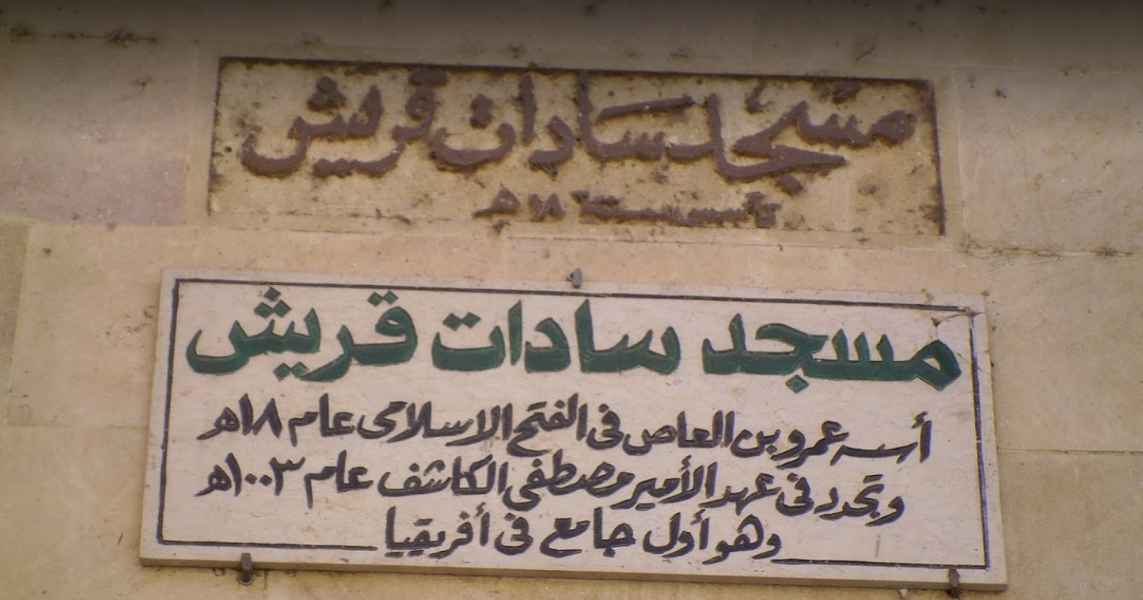 مسجد سادات قريش
تأسس سنة ١٨ هـ
مسجد سادات قريش
أسسه عمرو بن العاص فى الفتح الاسلامى عام ١٨هـ
وتجدد فى عهد الأمير مصطفى الكاشف عام ١٠٠٣هـ
وهو أول جامع فى أفريقيا